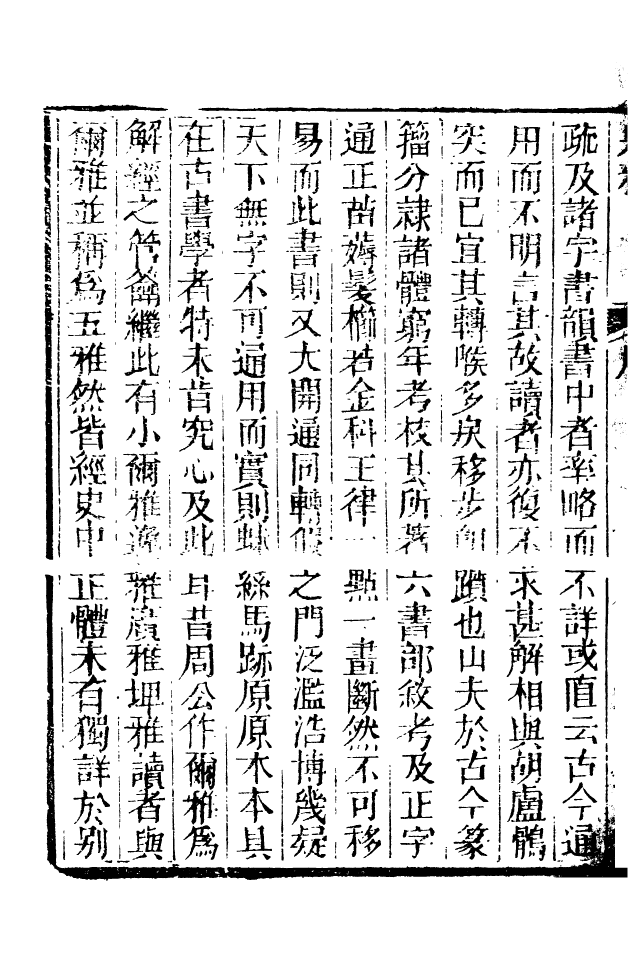 疏及諸字書韻書中者率略而不詳或直云古今通
用而不明言其故讀者亦復不求甚解相與胡盧鶻
突而已宜其轉喉多戾移步即躓也山夫於古今篆
籀分隸諸體窮年考核其所著六書部敘考及正字
通正苗薅髮櫛若金科玉律一點一畫斷然不可移
易而此書則又大開通同轉假之門泛濫浩博幾疑
天下無字不可通用而實則蛛絲馬跡原原本本具
在古書學者特未肯究心及此耳昔周公作爾雅為
解經之筦籥繼此有小爾雅逸雅廣雅埤雅讀者與
爾雅並稱為五雅然皆經史中正體未有獨詳於别